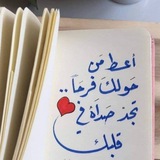 أعط من
حولك فرحاً..
تجد صداه في
قلبك